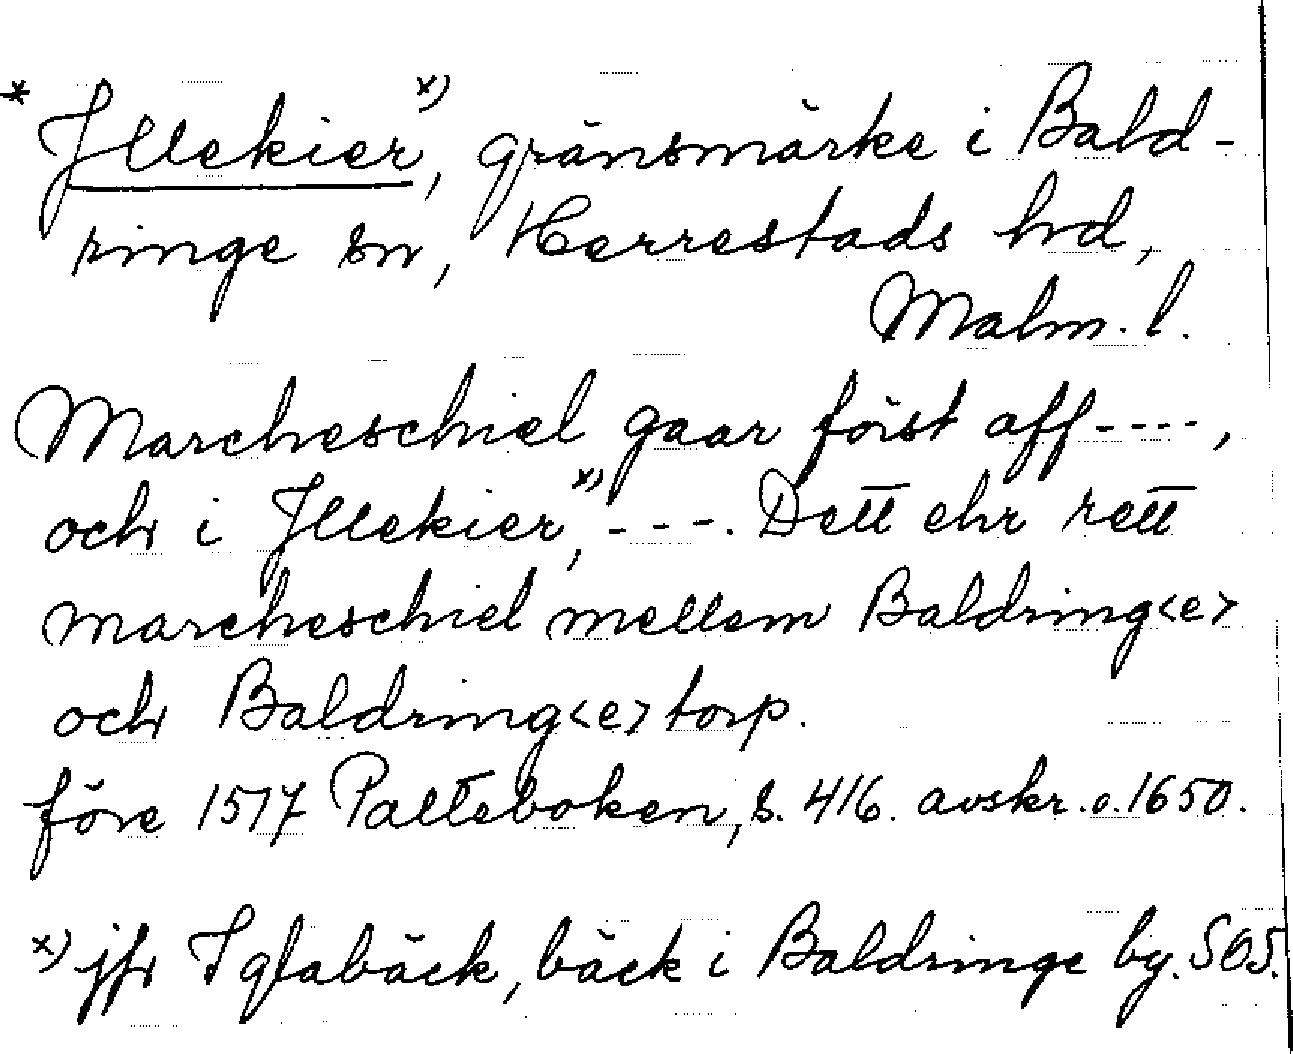 * Jllekier x), gränsmärke i Bald-
ringe sn, Herrestads hd,
Malm. l.
Marcheschiel gaar först aff ----,
och i Jllekier x), ---. Dett ehr rett
marcheschiel mellem Baldring<e>
och Baldring<e>torp.
före 1517 Palteboken, s. 416. avskr. o. 1650.
x) jfr Iglabäck, bäck i Baldringe by. SOS.